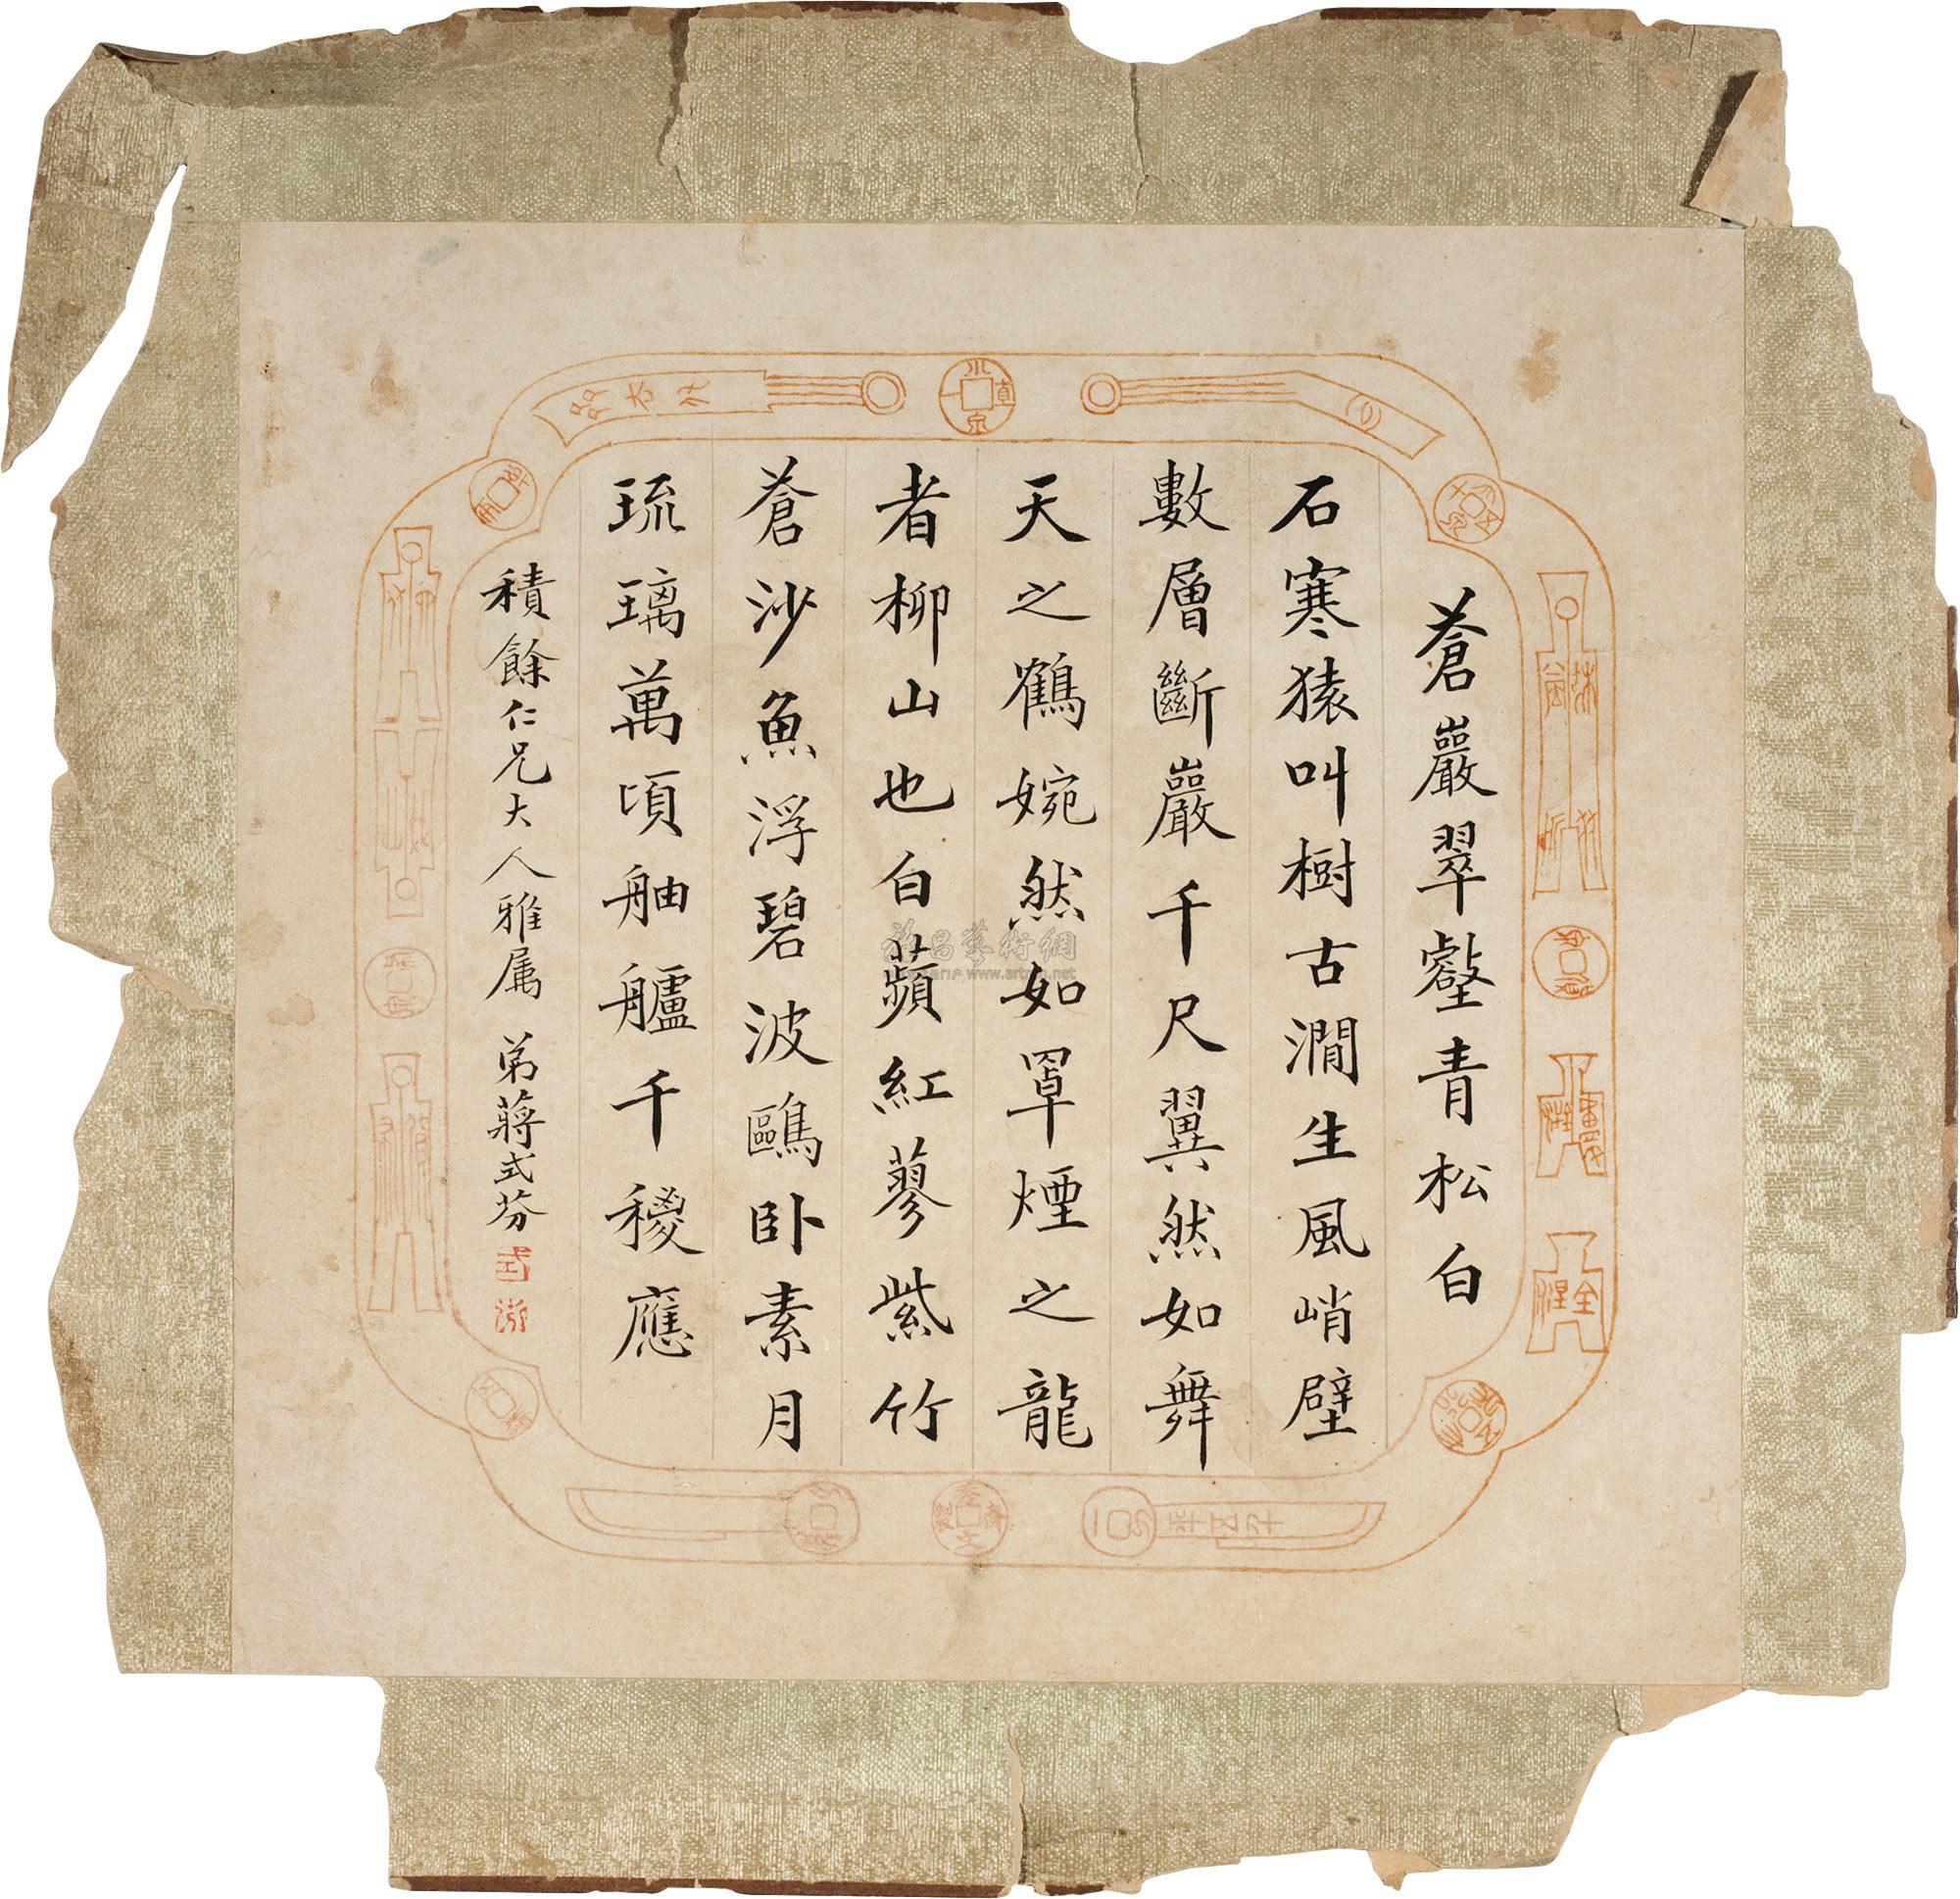 蒼巖翠壑青松白
石寒猿叫樹古澗生風峭壁
數層斷巖千尺翼然如舞
天之鶴婉然如罩煙之龍
者柳山也白蘋紅蓼紫竹
蒼沙魚浮碧波鷗卧素月
琉璃萬頃舳艫千稷應
積餘仁兄大人雅属 弟蔣式芬
www.artron.net